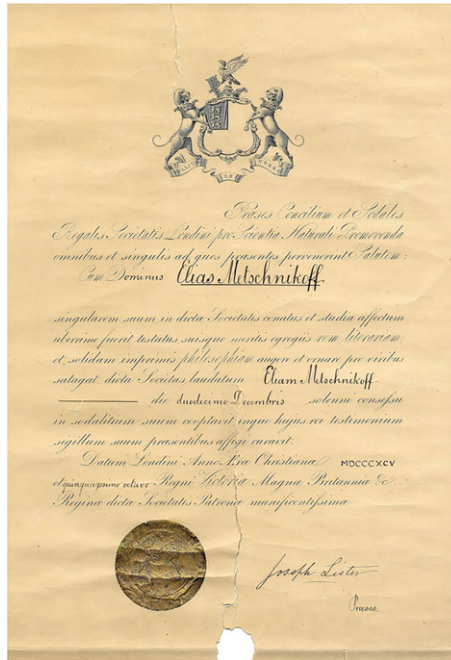 NULLIUS IN VERBA
Præses Concilium et Sodales
Regalis Societatis Londini pro Scientia Naturali Promovenda
omnibus et singulis ad quos præsentes pervenerint Salutem:
Cum Dominus Elias Metschnikoff
singularem suum in dictæ Societatis conatus et studia affectum
uberrime fuerit testatus suisque meritis egregiis rem literariam
et solidam imprimis philosophiam augere et ornare pro viribus
satagat, dicta Societas laudatum Eliam Metschnikoff
die duodecimo Decembris solenni consessu
in sodalitium suum cooptavit inque hujus rei testimonium
sigillum suum præsentibus affigi curavit.
Datum Londini Anno Æræ Christianæ MDCCCXCV
et Regni Victoriæ Magnæ Britanniæ &c.
Reginæ dictæ Societatis Patronæ munificentissimæ
Joseph Lister
Præses.